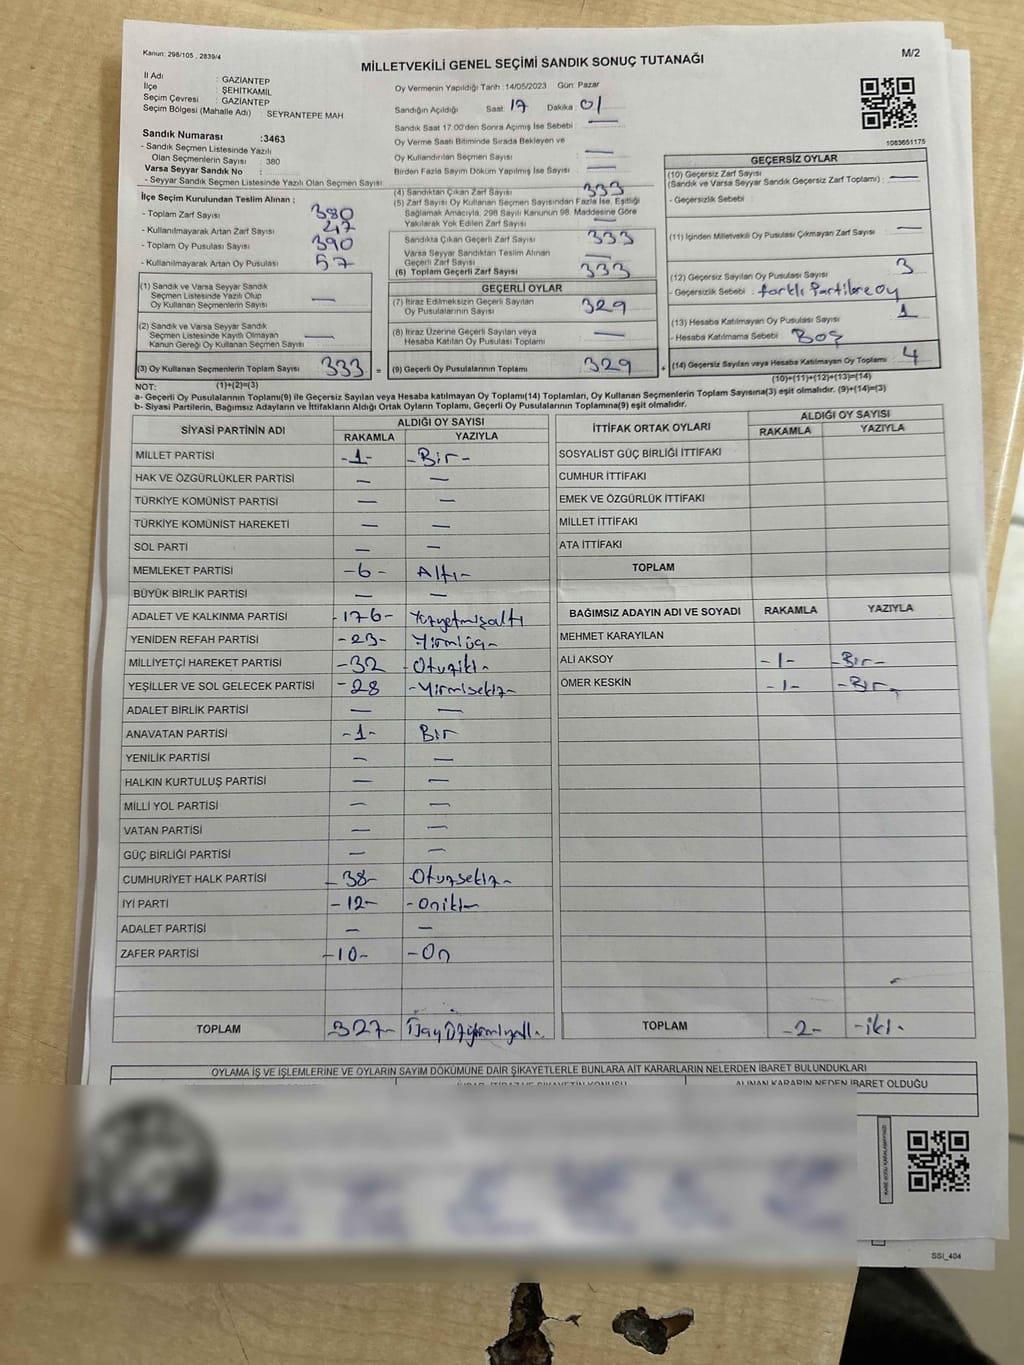 Kanun: 298/105 , 2839/4
MİLLETVEKİLİ GENEL SEÇİMİ SANDIK SONUÇ TUTANAĞI
M/2
İl Adı : GAZİANTEP
İlçe : ŞEHİTKAMİL
Seçim Çevresi : GAZİANTEP
Seçim Bölgesi (Mahalle Adı) : SEYRANTEPE MAH.
Sandık Numarası :3463
- Sandık Seçmen Listesinde Yazılı
Olan Seçmenlerin Sayısı : 380
Varsa Seyyar Sandık No :
- Seyyar Sandık Seçmen Listesinde Yazılı Olan Seçmen Sayısı
Oy Vermenin Yapıldığı Tarih :14/05/2023 Gün: Pazar
Sandığın Açıldığı Saat 17 Dakika 01
Sandık Saat 17:00'den Sonra Açımış İse Sebebi : —
Oy Verme Saati Bitiminde Sırada Bekleyen ve
Oy Kullandırılan Seçmen Sayısı —
Birden Fazla Sayım Döküm Yapılmış İse Sayısı : —
1083651175
İlçe Seçim Kurulundan Teslim Alınan ;
- Toplam Zarf Sayısı : 380
- Kullanılmayarak Artan Zarf Sayısı : 47
- Toplam Oy Pusulası Sayısı : 390
- Kullanılmayarak Artan Oy Pusulası : 57
(1) Sandık ve Varsa Seyyar Sandık
Seçmen Listesinde Yazılı Olup
Oy Kullanan Seçmenlerin Sayısı —
(2) Sandık ve Varsa Seyyar Sandık
Seçmen Listesinde Kayıtlı Olmayan
Kanun Gereği Oy Kullanan Seçmen Sayısı —
(3) Oy Kullanan Seçmenlerin Toplam Sayısı 333 =
(4) Sandıktan Çıkan Zarf Sayısı 333
(5) Zarf Sayısı Oy Kullanan Seçmen Sayısından Fazla İse, Eşitliği
Sağlamak Amacıyla, 298 Sayılı Kanunun 98. Maddesine Göre
Yakılarak Yok Edilen Zarf Sayısı —
Sandıkta Çıkan Geçerli Zarf Sayısı : 333
Varsa Seyyar Sandıktan Teslim Alınan
Geçerli Zarf Sayısı —
(6) Toplam Geçerli Zarf Sayısı : 333
GEÇERLİ OYLAR
(7) İtiraz Edilmeksizin Geçerli Sayılan
Oy Pusulalarının Sayısı : 329
(8) İtiraz Üzerine Geçerli Sayılan veya
Hesaba Katılan Oy Pusulası Toplamı : —
(9) Geçerli Oy Pusulalarının Toplamı : 329 +
GEÇERSİZ OYLAR
(10) Geçersiz Zarf Sayısı
(Sandık ve Varsa Seyyar Sandık Geçersiz Zarf Toplamı) : —
- Geçersizlik Sebebi :
(11) İçinden Milletvekili Oy Pusulası Çıkmayan Zarf Sayısı : —
(12) Geçersiz Sayılan Oy Pusulası Sayısı : 3
- Geçersizlik Sebebi : farklı Partilere oy
(13) Hesaba Katılmayan Oy Pusulası Sayısı : 1
- Hesaba Katılmama Sebebi : Boş
(14) Geçersiz Sayılan veya Hesaba Katılmayan Oy Toplamı : 4
NOT: (1)+(2)=(3)
(10)+(11)+(12)+(13)=(14)
a- Geçerli Oy Pusulalarının Toplamı(9) ile Geçersiz Sayılan veya Hesaba katılmayan Oy Toplamı(14) Toplamları, Oy Kullanan Seçmenlerin Toplam Sayısına(3) eşit olmalıdır. (9)+(14)=(3)
b- Siyasi Partilerin, Bağımsız Adayların ve İttifakların Aldığı Ortak Oyların Toplamı, Geçerli Oy Pusulalarının Toplamına(9) eşit olmalıdır.
SİYASİ PARTİNİN ADI
ALDIĞI OY SAYISI
RAKAMLA YAZIYLA
MİLLET PARTİSİ -1- -Bir-
HAK VE ÖZGÜRLÜKLER PARTİSİ — —
TÜRKİYE KOMÜNİST PARTİSİ — —
TÜRKİYE KOMÜNİST HAREKETİ — —
SOL PARTİ — —
MEMLEKET PARTİSİ -6- Altı-
BÜYÜK BİRLİK PARTİSİ — —
ADALET VE KALKINMA PARTİSİ -176- Yüzyetmişaltı
YENİDEN REFAH PARTİSİ -23- -Yirmiüç-
MİLLİYETÇİ HAREKET PARTİSİ -32 -Otuziki-
YEŞİLLER VE SOL GELECEK PARTİSİ -28 -Yirmisekiz-
ADALET BİRLİK PARTİSİ — —
ANAVATAN PARTİSİ -1- Bir
YENİLİK PARTİSİ — —
HALKIN KURTULUŞ PARTİSİ — —
MİLLİ YOL PARTİSİ — —
VATAN PARTİSİ — —
GÜÇ BİRLİĞİ PARTİSİ — —
CUMHURİYET HALK PARTİSİ -38- Otuzsekiz-
İYİ PARTİ -12- -oniki-
ADALET PARTİSİ — —
ZAFER PARTİSİ -10- -On
TOPLAM -327-
İTTİFAK ORTAK OYLARI
ALDIĞI OY SAYISI
RAKAMLA YAZIYLA
SOSYALİST GÜÇ BİRLİĞİ İTTİFAKI
CUMHUR İTTİFAKI
EMEK VE ÖZGÜRLÜK İTTİFAKI
MİLLET İTTİFAKI
ATA İTTİFAKI
TOPLAM
BAĞIMSIZ ADAYIN ADI VE SOYADI RAKAMLA YAZIYLA
MEHMET KARAYILAN
ALİ AKSOY -1- -Bir-
ÖMER KESKİN -1- -Bir-
TOPLAM -2- -iki-
OYLAMA İŞ VE İŞLEMLERİNE VE OYLARIN SAYIM DÖKÜMÜNE DAİR ŞİKAYETLERLE BUNLARA AİT KARARLARIN NELERDEN İBARET BULUNDUKLARI
ALINAN KARARIN NEDEN İBARET OLDUĞU
SSI_404